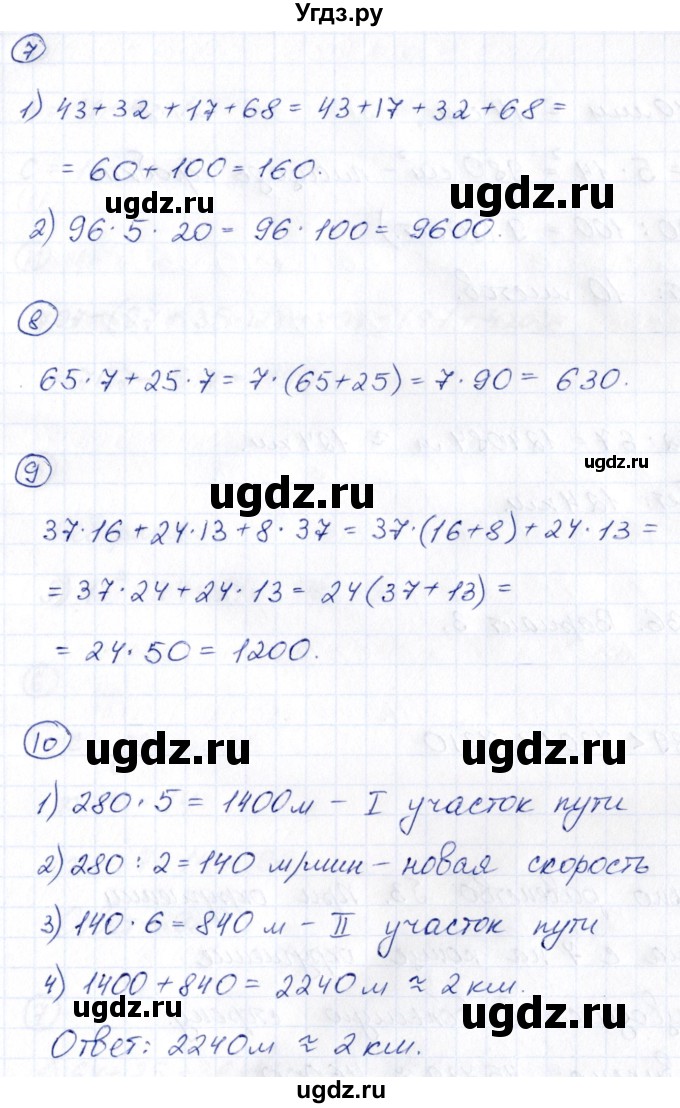 Угдз.ру
7
1) 43+32+17+68 = 43+17+32+68 =
= 60+100=160.
ugdz.ru ugdz.ru
2) 96·5·20= 96·100= 9600.
ugdz.ru
8
65·7+25·7= 7·(65+25)=7·90= 630.
ugdz.ru
9
ugdz.ru
37·16+24·13+8·37 = 37·(16+8)+24·13=
= 37·24+24·13= 24(37+13)=
= 24·50=1200.
10
ugdz.ru ugdz.ru
1) 280·5=1400м - I участок пути
2) 280:2=140 м/мин - новая скорость
3) 140·6=840 м - II участок пути
4) 1400+840= 2240м ≈ 2 км.
Ответ: 2240м ≈ 2 км.
ugdz.ru
ugdz.ru